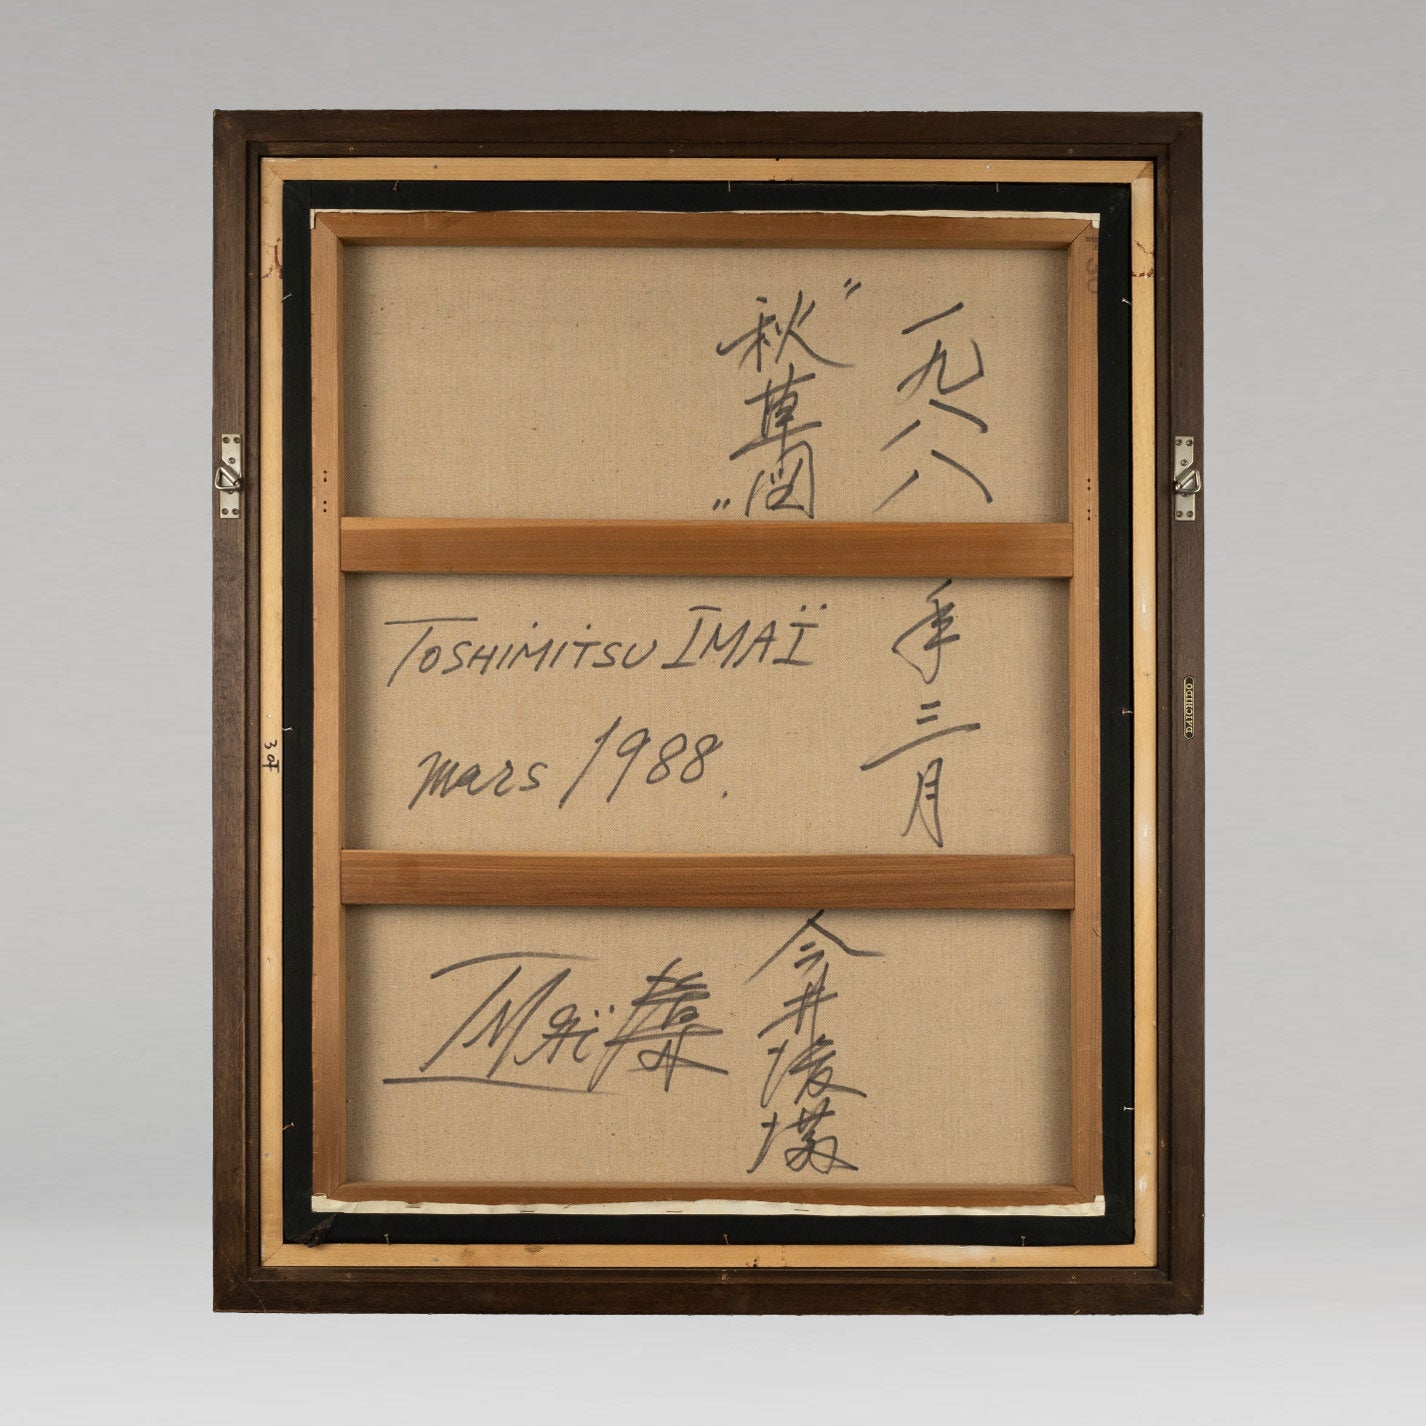 一九八八年三月
"秋草図"
TOSHIMITSU IMAÏ
mars 1988.
今井俊満
IMAï
DAICHIDO